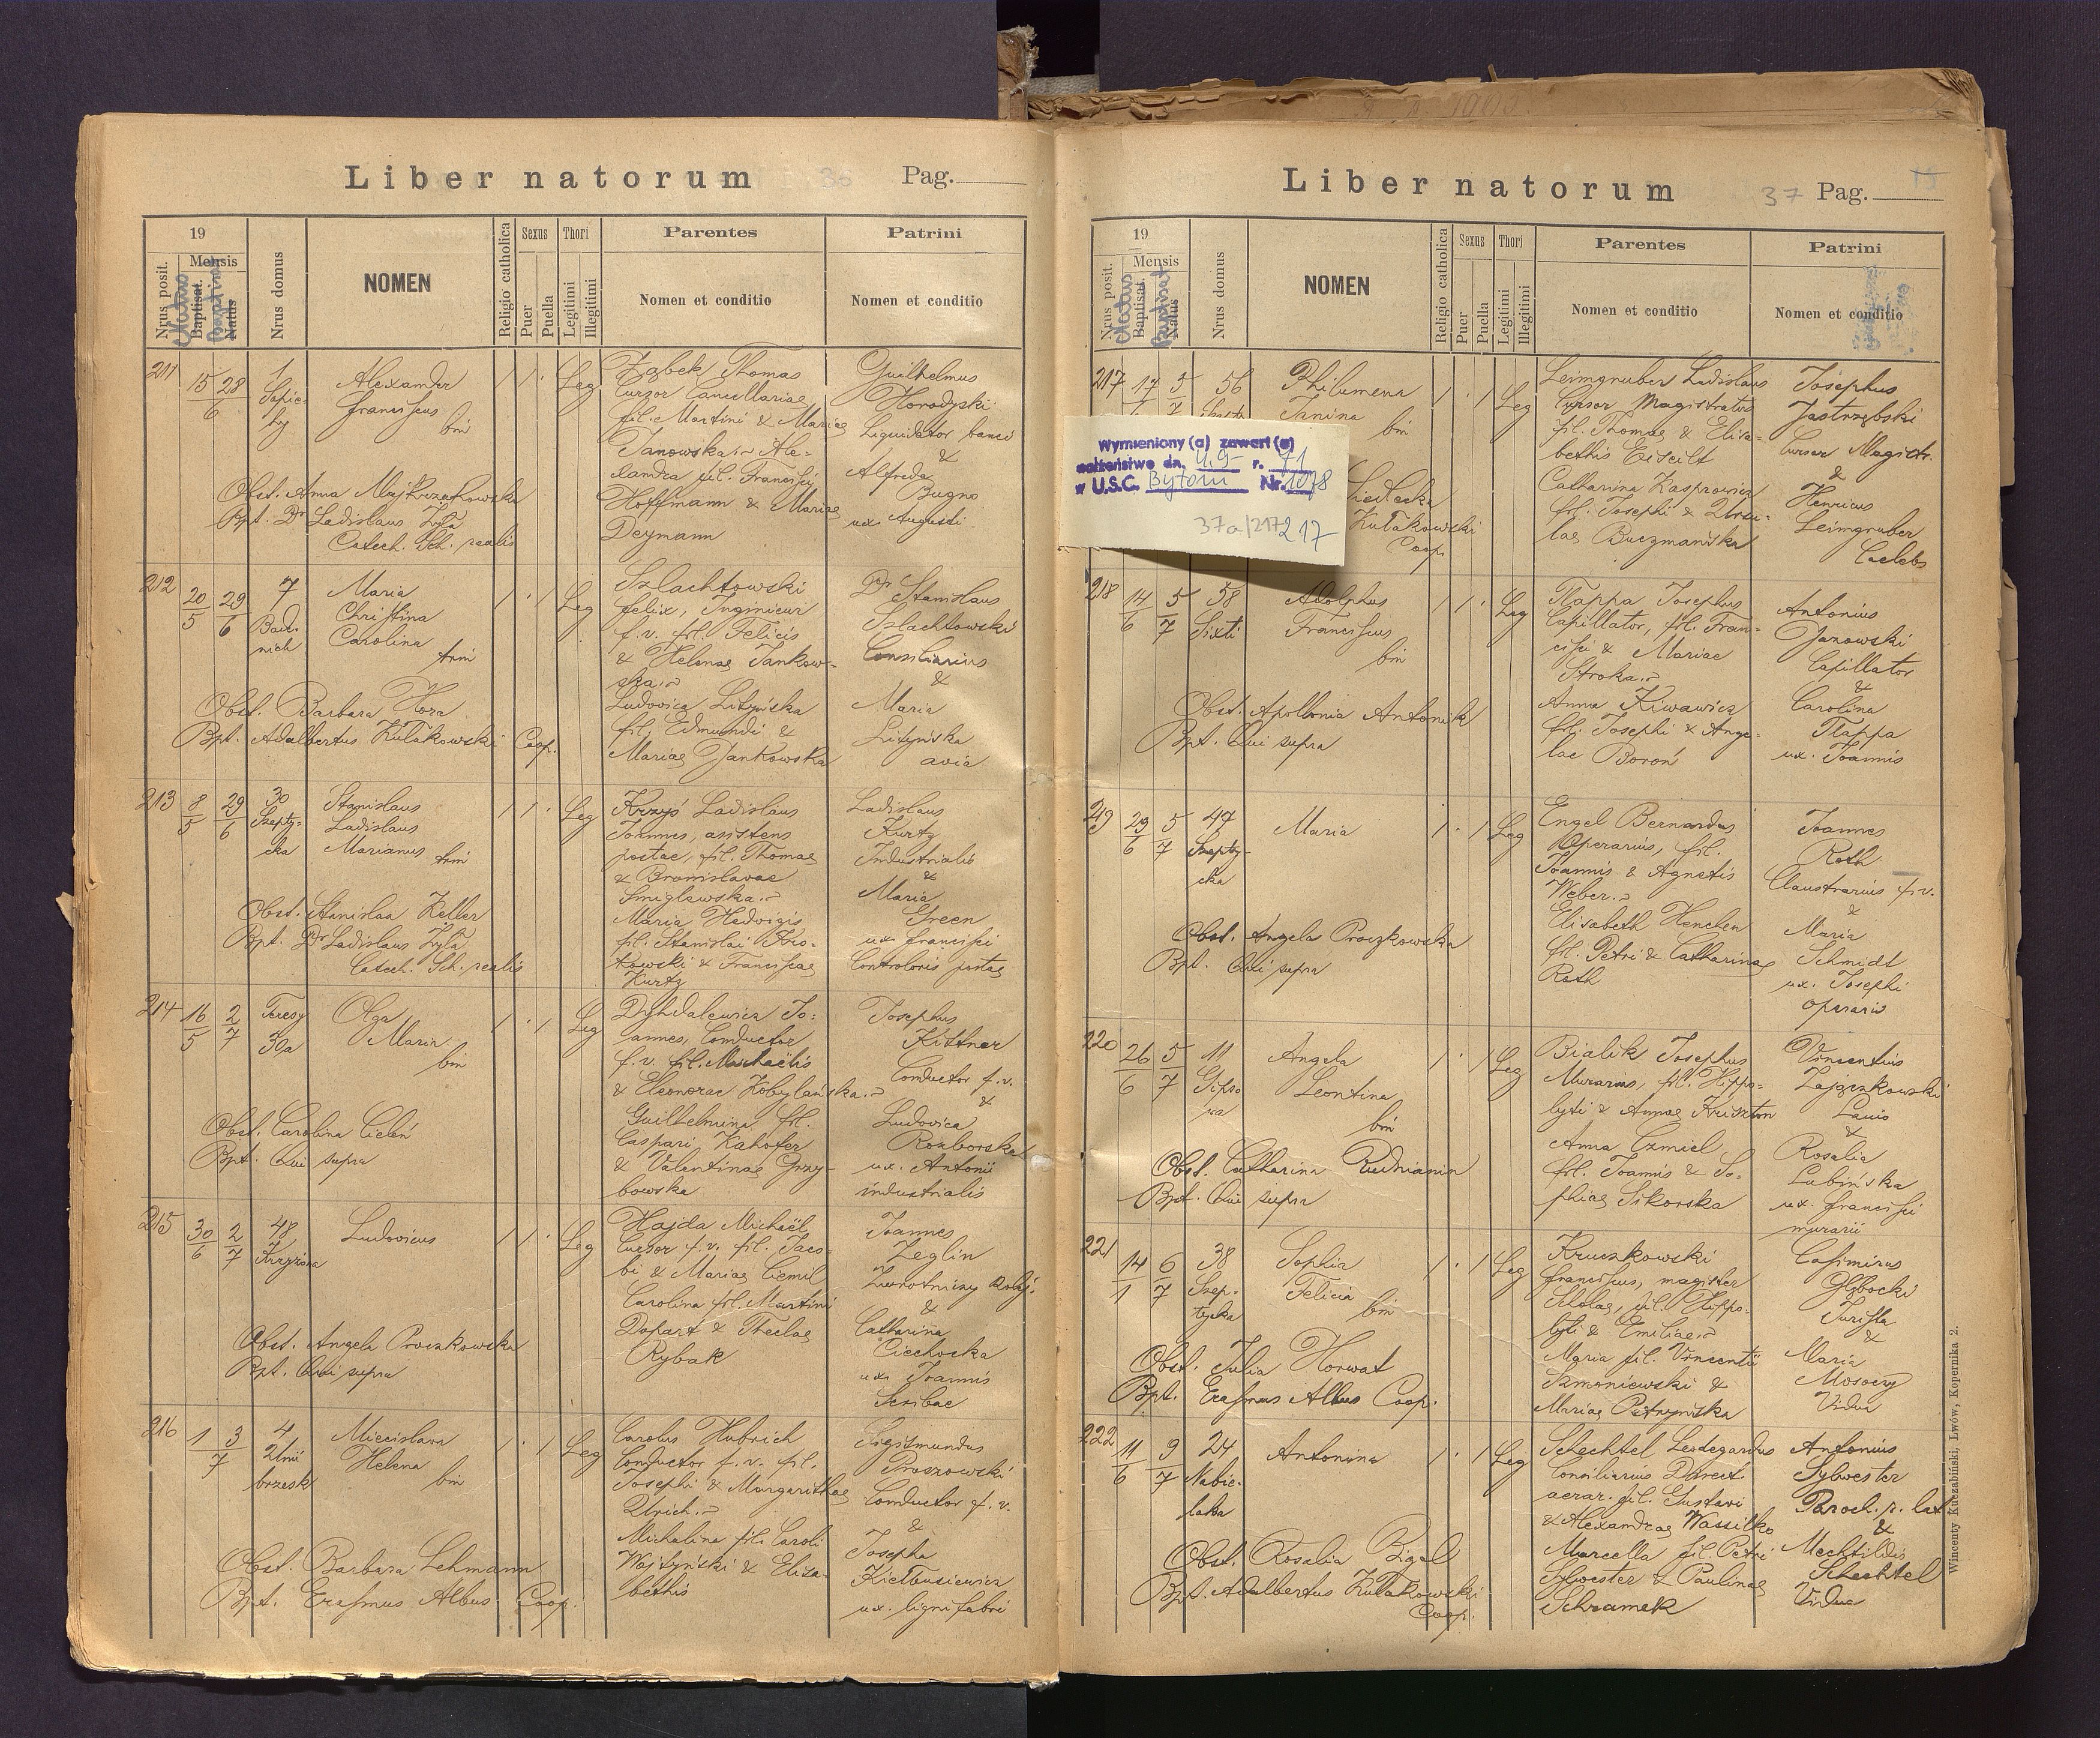 Liber natorum
36
Pag.
19
Nrus posit.
Mensis
Natus
Baptisat.
Baptisat
Natus
Nrus domus
NOMEN
Religio catholica
Sexus
Puer
Puella
Thori
Legitimi
Illegitimi
Parentes
Nomen et conditio
Patrini
Nomen et conditio
211
15 28
6
1
Sapie-
hy
Alexander
Franciscus
bin
1 1 · Leg
Ząbek Thomas
Cursor Cancellariae
fil. Martini & Mariae
Janowska. Ale-
xandra fil. Francisci
Hoffmann & Mariae
Deymann
Guilhelmus
Horodyski
Liquidator banci
&
Alfreda
Bugno
ux. Augusti
Obst. Anna Majkrzakowska
Bpt. Dr Ladislaus Żyła
Catech. Sch. realis
212
20 29
5 6
7
Maria
Christina
Carolina
trin
1 · 1 Leg
Szlachtowski
Felix, Inginieur
f. v. fil. Felicis
& Helenae Jankow-
ska.
Ludovica Lityńska
fil. Edmundi &
Mariae Jankowska
Dr Stanislaus
Szlachtowski
Consiliarius
&
Maria
Lityńska
avia
Obst. Barbara Hora
Bpt. Adalbertus Kułakowski Coop.
213
8 29
5 6
30
Szepty-
cka
Stanislaus
Ladislaus
Marianus trin
1 1 · Leg
Krzyś Ladislaus
Joannes, asistens
postae, fil. Thomae
& Bronislavae
Śmiglewska.
Maria Hedvigis
fil. Stanislai Kro-
kowski & Franciscae
Kurtz
Ladislaus
Kurtz
Industrialis
&
Maria
Green
ux. Francisci
Controloris postae
Obst. Stanislaa Keller
Bpt. Dr Ladislaus Żyła
Catech. Sch. realis
214
16 2
5 7
Teresy
30a
Olga
Maria
bin
1 · 1 Leg
Dyhdalewicz Jo-
annes, Conductor
f. v. fil. Michaëlis
& Eleonorae Kobylańska.
Guilhelmina fil.
Caspari Kahofer
& Valentinae Grzy-
bowska
Josephus
Kittner
Conductor f. v.
&
Ludovica
Rozborska
ux. Antonii
industrialis
Obst. Carolina Cieleń
Bpt. Qui supra
215
30 2
6 7
48
Ludovicus
1 1 · Leg
Hajda Michaël
Cursor f. v. fil. Jaco-
bi & Mariae Ciemil
Carolina fil. Martini
Dopart & Theclae
Rybak
Joannes
Żeglin
Zwrotniczy kolej.
&
Catharina
Ciechocka
ux. Joannis
Scribae
Obst. Angela Proczkowska
Bpt. Qui supra
216
1 3
7
4
Unii
brzesk
Miecislava
Helena
bin
1 · 1 Leg
Carolus Hubrich
Conductor f. v. fil.
Josephi & Margarithae
Ulrich.
Michalina fil. Caroli
Wojtyński & Elisa-
bethis
Sigismundus
Proszowski
Conductor f. v.
&
Josepha
Kiełbusiewicz
ux. lignifabri
Obst. Barbara Lehmann
Bpt. Erasmus Albus Coop.
Liber natorum
37
Pag.
19
Nrus posit.
Mensis
Natus
Baptisat.
Baptisat
Natus
Nrus domus
NOMEN
Religio catholica
Sexus
Puer
Puella
Thori
Legitimi
Illegitimi
Parentes
Nomen et conditio
Patrini
Nomen et conditio
217
17 5
56
Philumena
Janina
bin
1 · 1 Leg
Leimgruber Ladislaus
Cursor Magistratus
fil. Thomae & Elisa-
bethis Eiselt
Catharina Kasprowicz
fil. Josephi & Ursu-
lae Buczmańska
Josephus
Jastrzębski
Cursor Magistr.
&
Henricus
Leimgruber
Caelebs
Wymieniony (a) zawarł (a)
małżeństwo dn. 4.9 r. 71
w U.S.C. Bytom Nr. 1078
37a/217 217
Siedlecka
Kułakowski
Coop.
218
14 5
6 7
58
Sixti
Adolphus
Franciscus
bin
1 1 · Leg
Flappa Josephus
Capillator, fil. Fran-
cisci & Mariae
Stroka.
Anna Kiwawicz
fil. Josephi & Ange-
lae Boroń
Antonius
Janowski
Capillator
&
Carolina
Flappa
ux. Joannis
Obst. Apollonia Antonik
Bpt. Qui supra
219
29 5
6 7
47
Szepty-
cka
Maria
1 · 1 Leg
Engel Bernardus
Operarius, fil.
Joannis & Agnetis
Weber.
Elisabeth Henchen
fil. Petri & Catharinae
Roth
Joannes
Roth
Claustrarius f. v.
&
Maria
Schmidt
ux. Josephi
operarii
Obst. Angela Proczkowska
Bpt. Qui supra
220
26 5
6 7
11
Gipso
wa
Angela
Leontina
bin
1 · 1 Leg
Bialik Josephus
Murarius, fil. Hippo-
lyti & Annae Kriszton
Anna Czmiel
fil. Joannis & So-
phiae Sikorska
Vincentius
Zajączkowski
Lanio
&
Rosalia
Lubińska
ux. Francisci
murarii
Obst. Catharina Rudnianin
Bpt. Qui supra
221
14 6
1 7
38
Szep-
tycka
Sophia
Felicia
bin
1 · 1 Leg
Kruszkowski
Franciscus, magister
Scholae, fil. Hippo-
lyti & Emiliae.
Maria fil. Vincentii
Szmoniewski &
Mariae Petryńska
Casimirus
Głębocki
Jurista
&
Maria
Mosoczy
Vidua
Obst. Julia Horwat
Bpt. Erasmus Albus Coop.
222
11 9
6 7
24
Nabie-
laka
Antonina
1 · 1 Leg
Schechtel Leodegardus
Consiliarius Direct.
aerar. fil. Gustavi
& Alexandrae Wassilko
Marcella fil. Petri
Sylwester & Paulinae
Schramek
Antonius
Sylwester
Paroch. r. lat
&
Mechtildis
Schechtel
Vidua
Obst. Rosalia Bigal
Bpt. Adalbertus Kułakowski
Coop.
Wincenty Kuczabiński, Lwów, Kopernika 2.